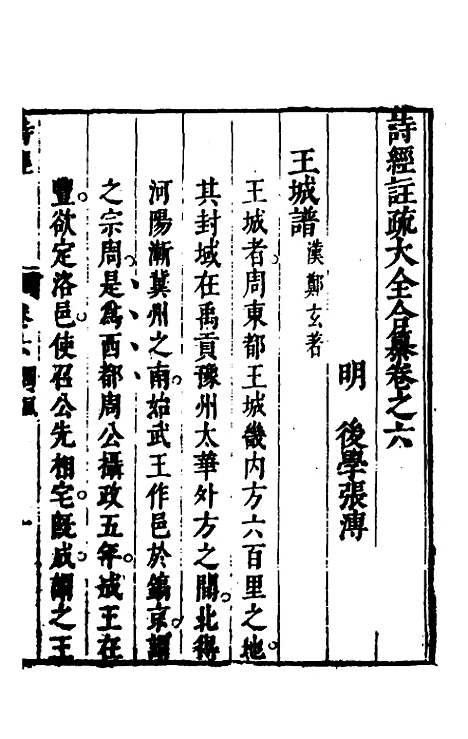 詩經註疏大全合纂卷之六
明 後學張溥
王城譜 漢鄭玄著
王城者。周東都王城畿内方六百里之地。
其封域在禹貢豫州太華外方之間。北得
河陽漸冀州之南。始武王作邑於鎬京。謂
之宗周。是爲西都周公攝政五年。成王在
豐。欲定洛邑。使召公先相宅。旣成謂之王
詩經 卷六